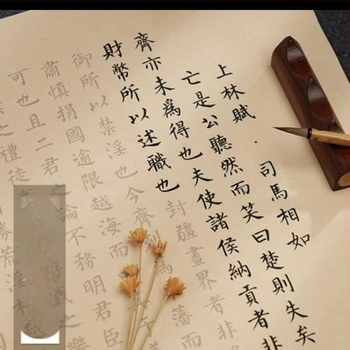 上林賦·司馬相如
亡是公聽然而笑曰楚則失矣
齊亦未為得也夫使諸侯納貢者非
財幣所以述職也封疆畫界者非
御所以禁淫也今齊藩而
肅慎捐國逾限越海而
可也且二君論不務明君臣
禮徒